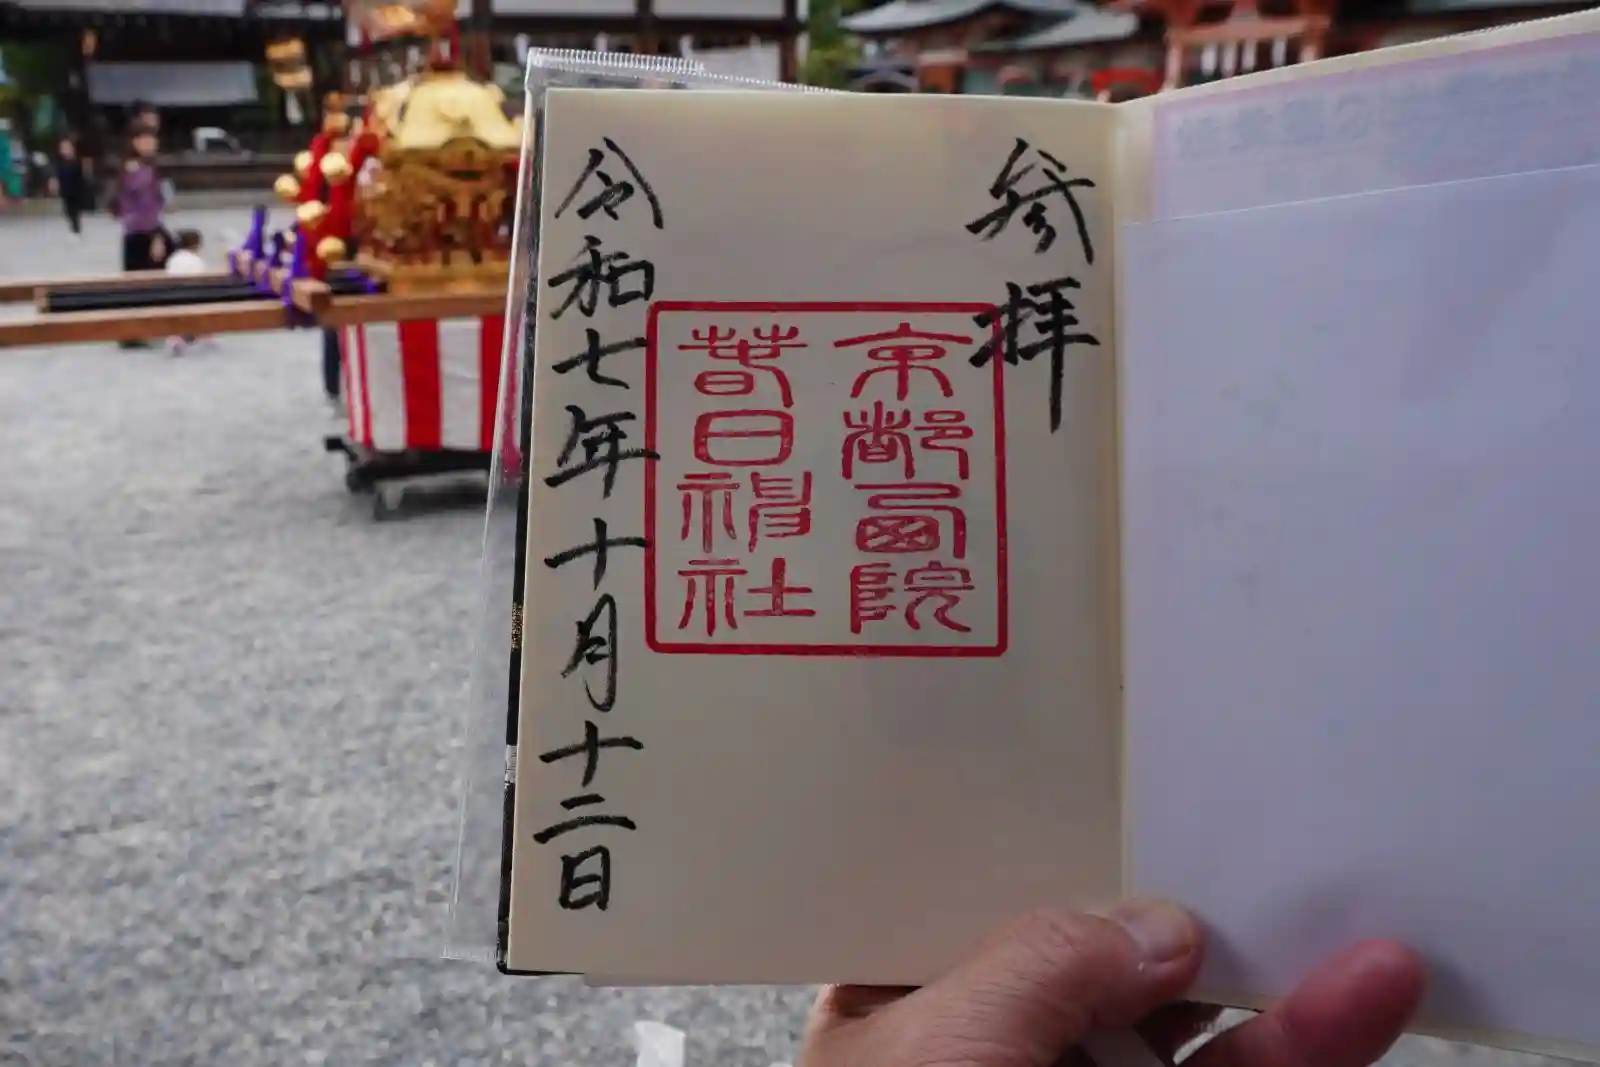 参拝
京都西院
春日神社
令和七年十月十二日